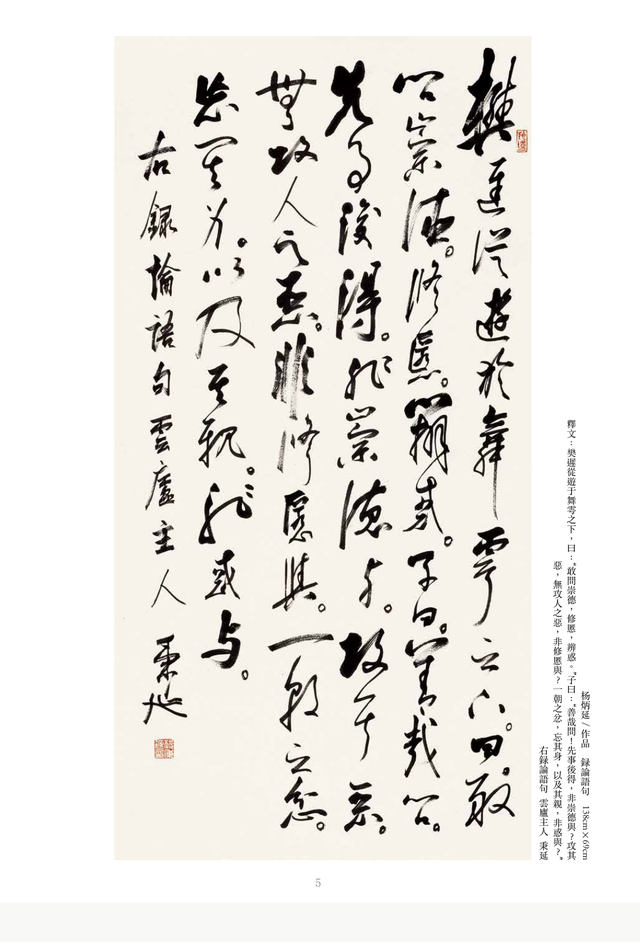 樊遲從遊於舞雩之下。曰。敢
問崇德。修慝。辨惑。子曰。善哉問。
先事後得。非崇德与。攻其惡。
無攻人之惡。非修慝與。一朝之忿。
忘其身。以及其親。非惑与。
右録論語句雲廬主人秉延
杨炳延/作品 録論語句 138cm×69cm
釋文：樊遲從遊于舞零之下，曰：“敢問崇德，修慝，辨惑。”子曰：“善哉問！先事後得，非崇德與？攻其
惡，無攻人之惡，非修慝與？一朝之忿，忘其身，以及其親，非惑與？”
右録論語句 雲廬主人 秉延
5